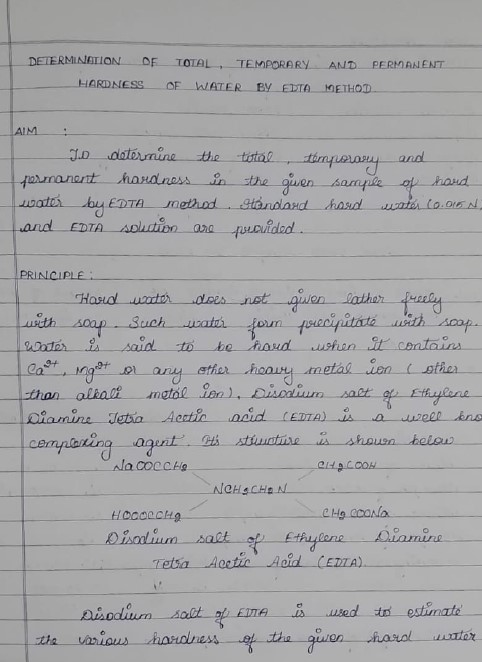 DETERMINATION OF TOTAL, TEMPORARY AND PERMANENT
HARDNESS OF WATER BY EDTA METHOD
AIM :
To determine the total, temporary and
permanent hardness in the given sample of hard
water by EDTA method. Standard hard water (0.015 N
and EDTA solution are provided.
PRINCIPLE :
Hard water does not given lather freely
with soap. Such water form precipitate with soap.
Water is said to be hard when it contains
Ca2+, Mg2+ or any other heavy metal ion ( other
than alkali metal ion). Disodium salt of Ethylene
Diamine Tetra Acetic acid (EDTA) is a well kno
complexing agent. Its structure is shown below
NaOOCCH2 CH2COOH
NCH2CH2N
HOOOCCH2 CH2COONa
Disodium salt of Ethylene Diamine
Tetra Acetic Acid (EDTA)
Disodium salt of EDTA is used to estimate
the various hardness of the given hard water